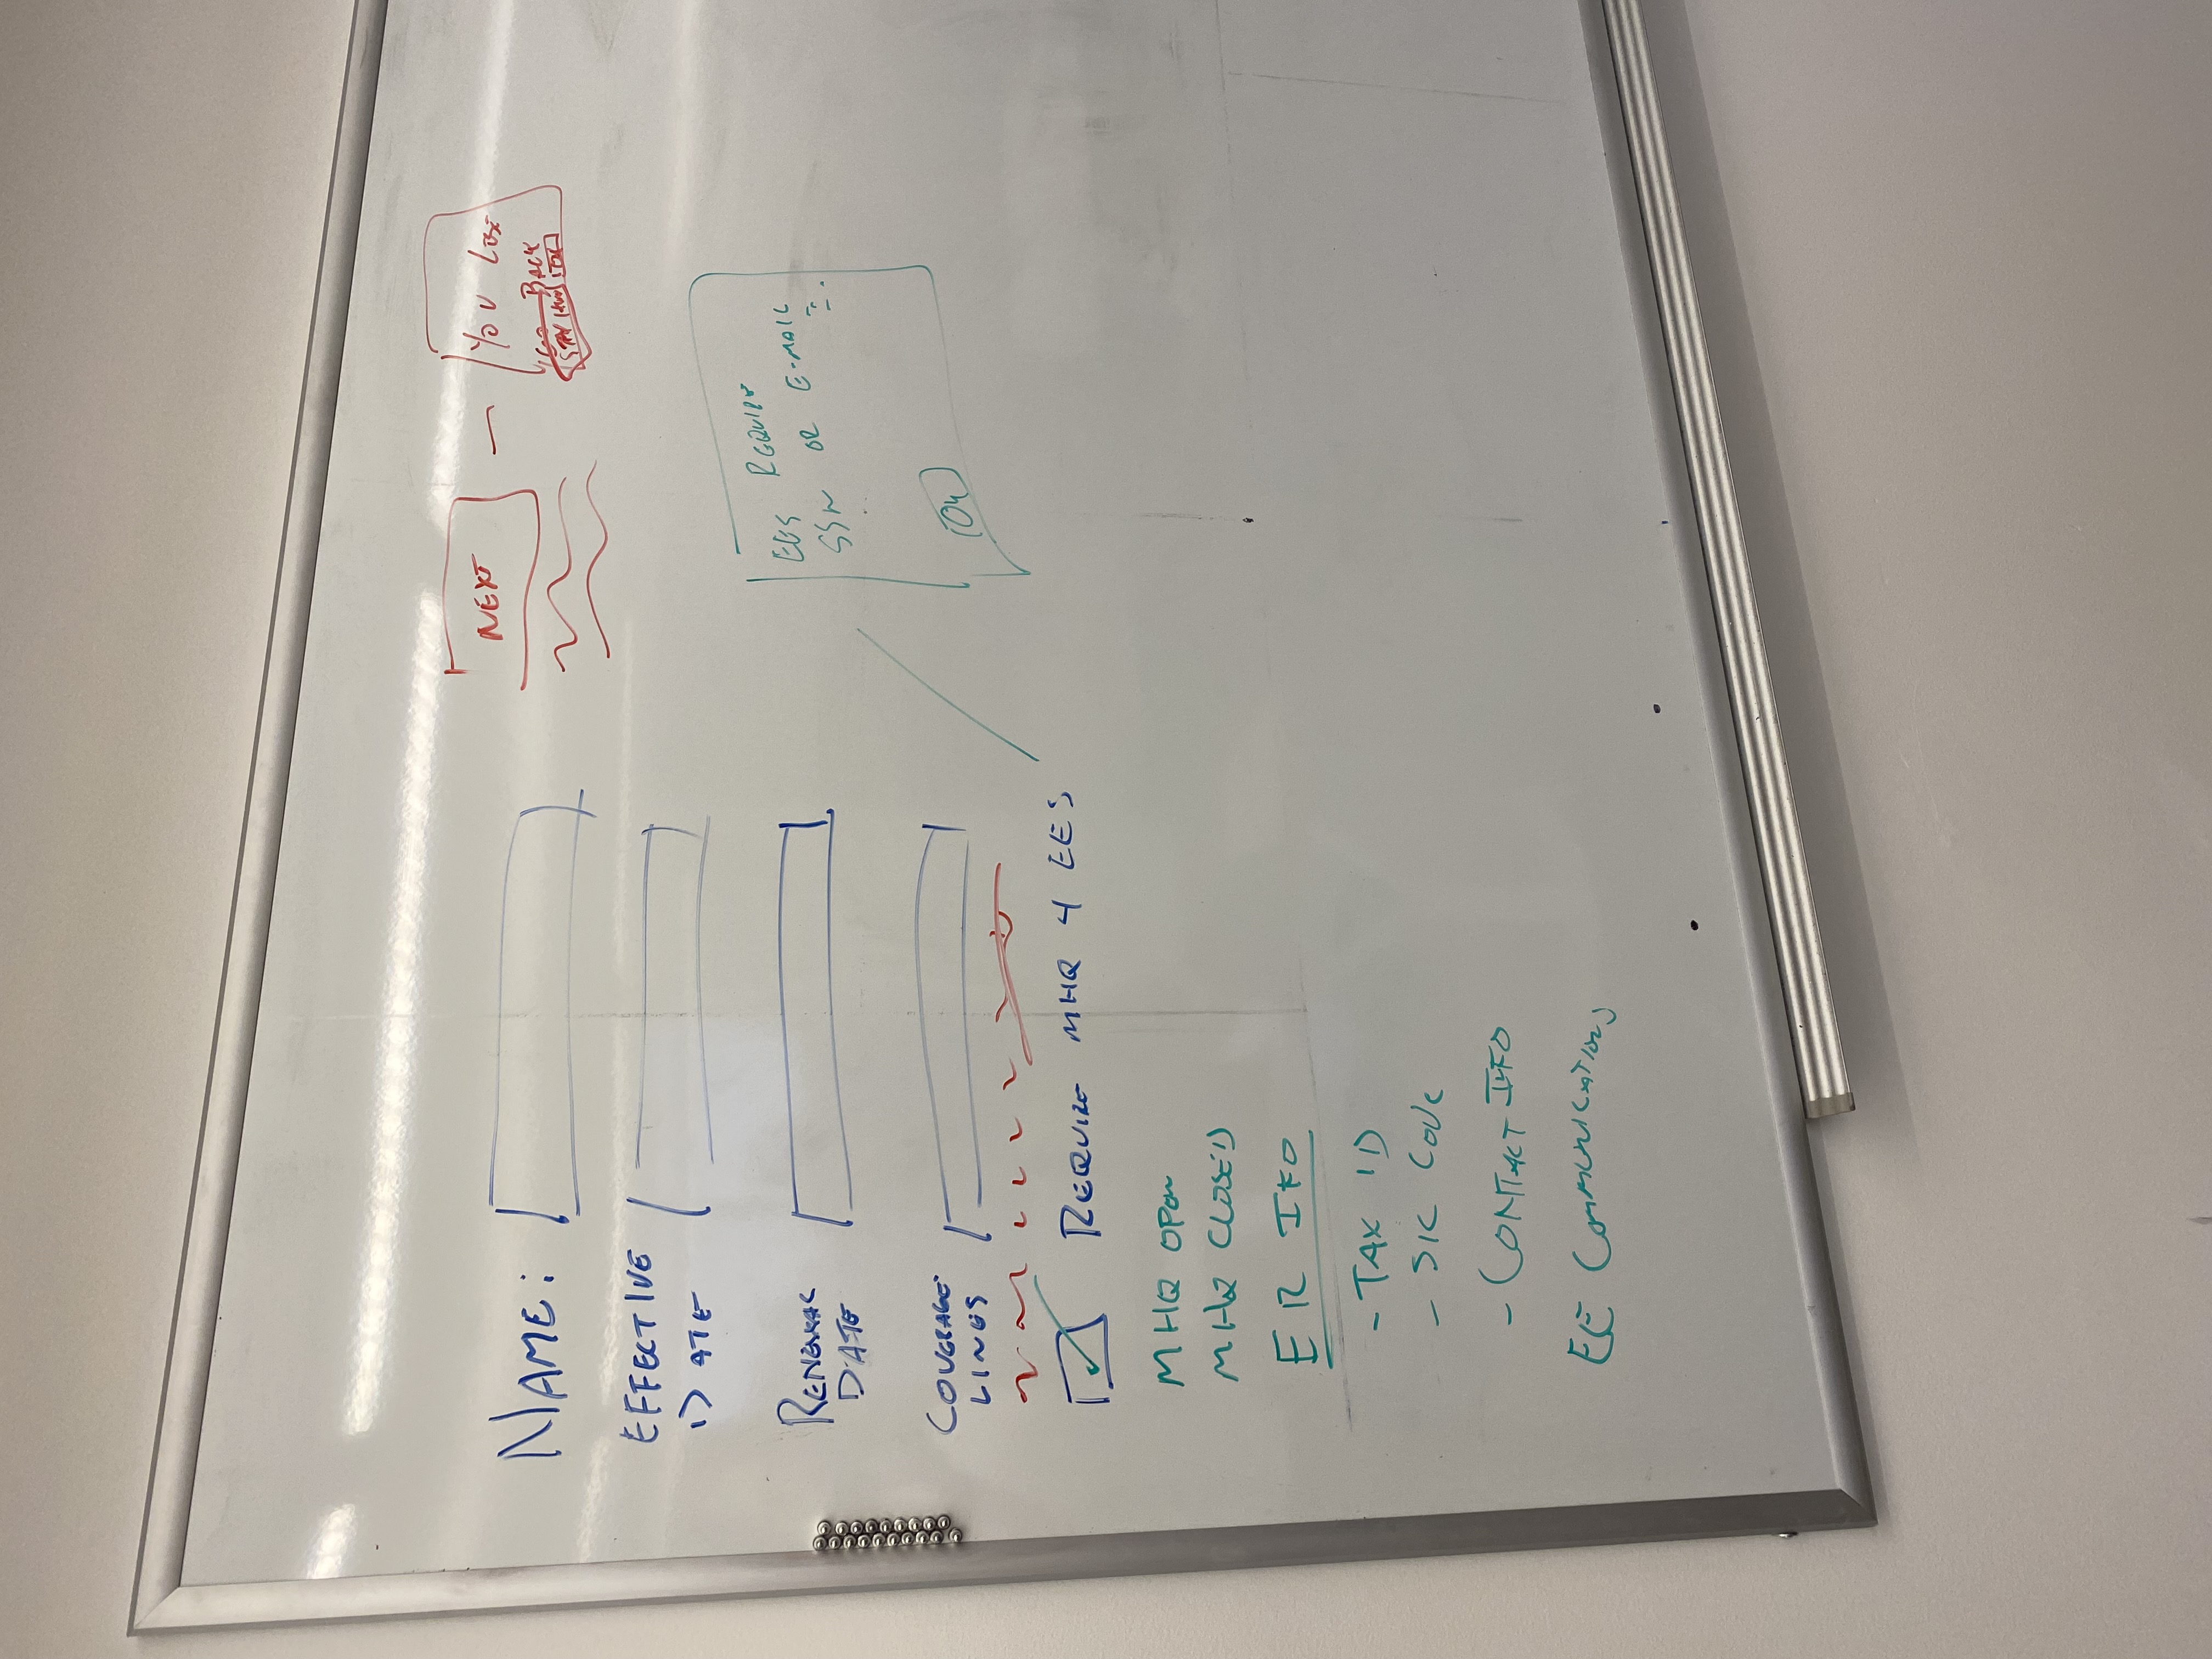 NAME:
EFFECTIVE
DATE
RENEWAL
DATE
COVERAGE
LINES
REQUIRE MHQ 4 EES
MHQ OPEN
MHQ CLOSED
ER IFO
- TAX ID
- SIC CODE
- CONTACT INFO
EE COMMUNICATIONS
NEXT
YOU LOSE
BACK
EES REQUIRE
SSN OR E-MAIL
OK